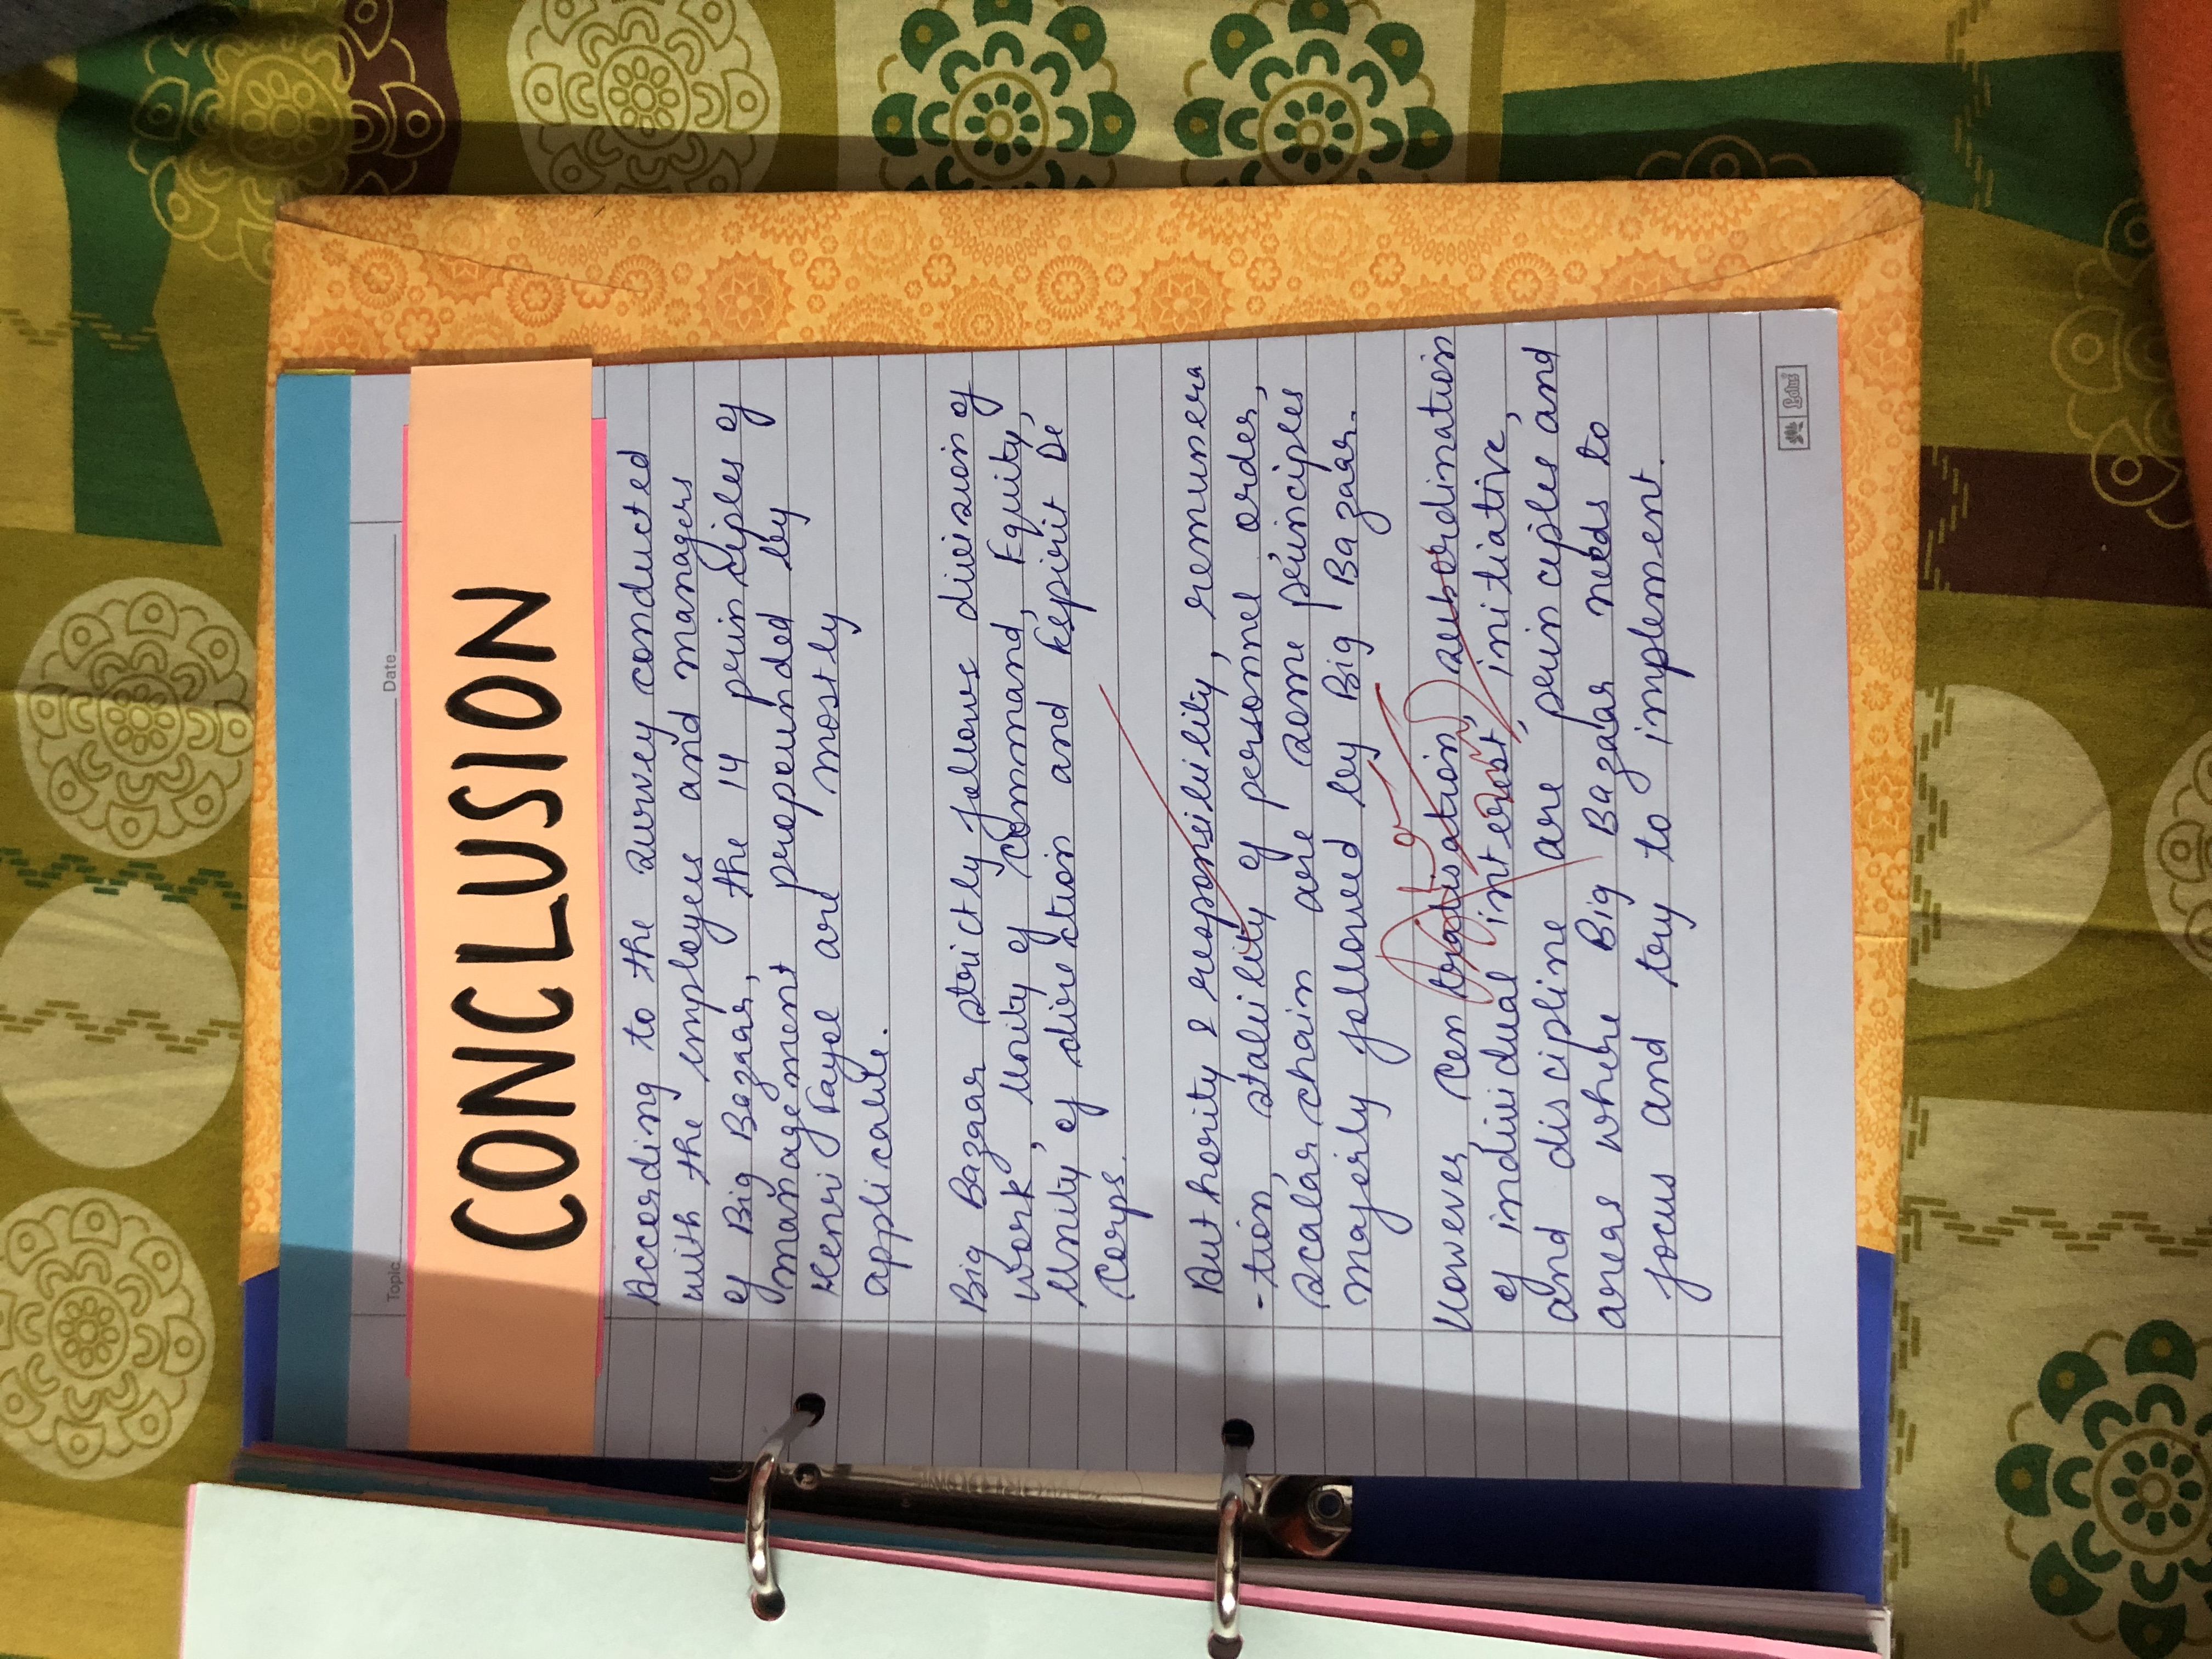 Topic
Date
CONCLUSION
According to the survey conducted
with the employees and managers
of Big Bazaar, the 14 principles of
management propounded by
Henri Fayol are mostly
applicable.
Big Bazaar strictly follows division of
work, Unity of command, Equity,
Unity of direction and Espirit De
Corps.
Authority & responsibility, remunera
-tion, stability of personnel order,
scalar chain are some principles
majorly followed by Big Bazaar.
However, subordination
of individual interest, initiative,
and discipline are principles and
areas where Big Bazaar needs to
focus and try to implement.
Lotus